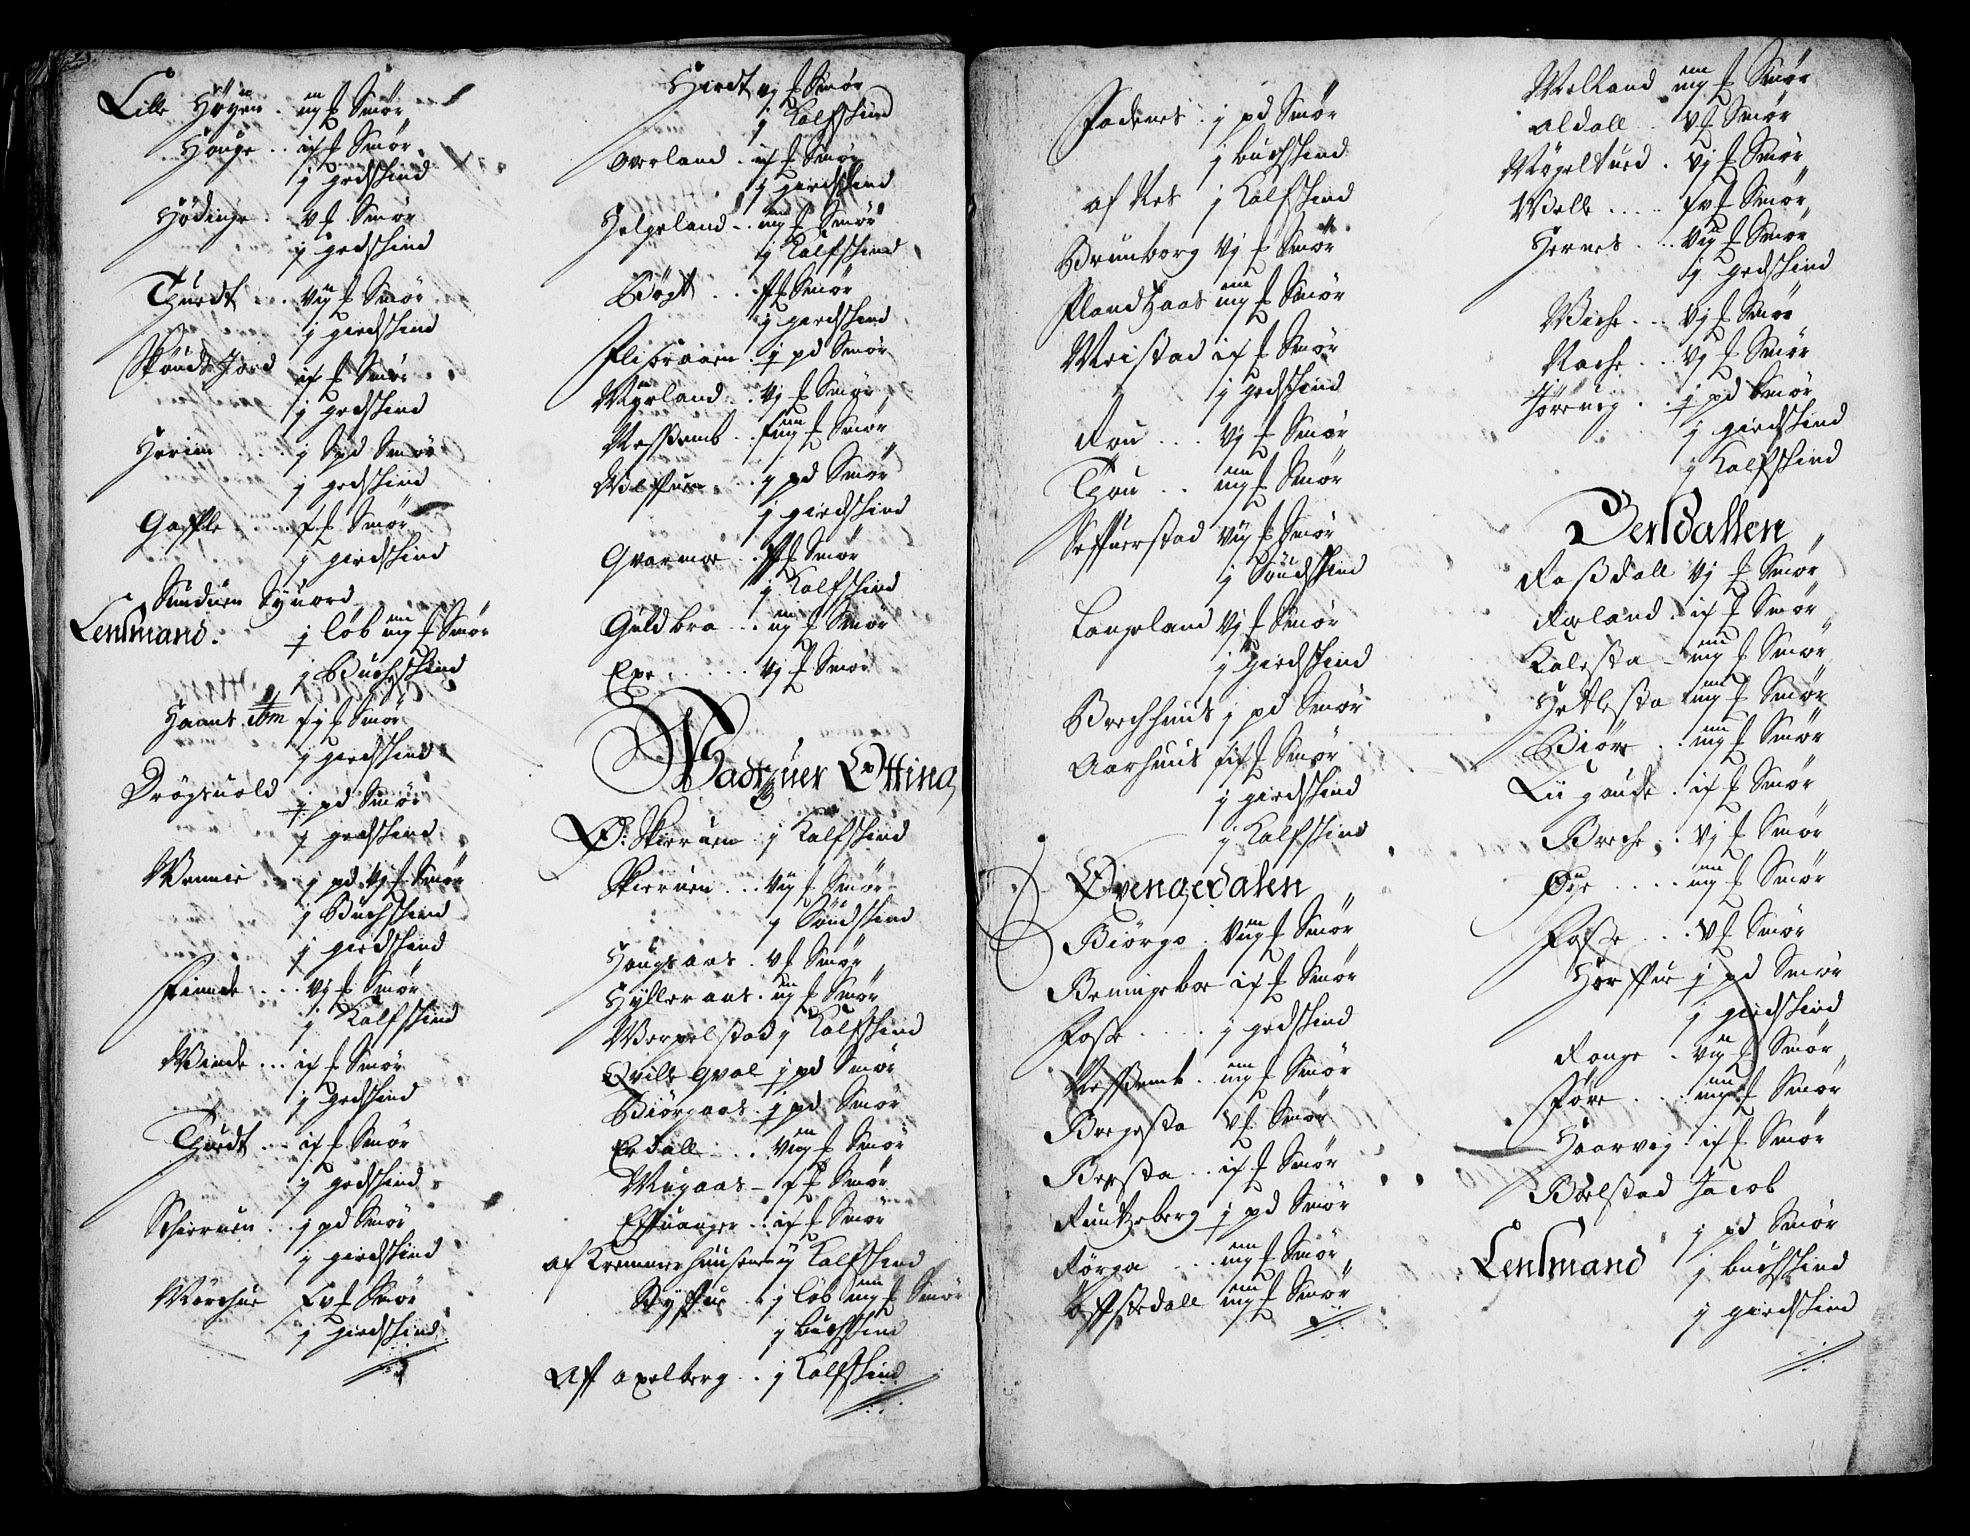 Lille Høyen . iiij ℔ Smør
Houge .. ij ℔ Smør
j gedskind
Hødinge . v ℔ Smør
j gedskind
Thuedt ... viij ℔ Smør
j giedskind
Skoudtiord ij ℔ Smør
j gedskind
Herim j spd Smør
j gedskind
Gaffle ℔ Smør
j giedskind
Sunduen Siuord
Lensmand . j løb iiij ℔ Smør
j Buchskind
Haans ibm ℔ Smør
j giedskind
Drøgsuold j pd Smør
j gedskind
Winnie j pd vj ℔ Smør
j Buchskind
j giedskind
Finnde ... vj ℔ Smør
j Kalfskind
Winde ... ij ℔ Smør
j gedskind
Thuedt ... ij ℔ Smør
j gedskind
Schieruen .. j pd Smør
j giedskind
Mørchue ℔ Smør
j giedskind
Hiedt vj ℔ Smør
j Kalfskind
Ouerland . ij ℔ Smør
j giedskind
Helgeland .. iiij ℔ Smør
j Kalfskind
Bøgt ... ℔ Smør
j giedskind
Flisraaen . j pd Smør
Mørland .. vj ℔ Smør
Nessemb .. ℔ Smør
Wolffuen ... j pd Smør
j giedskind
Gvarmoe . ℔ Smør
j Kalfskind
Guldbra ... iiij ℔ Smør
Exe ...... vj ℔ Smør
Badtzuer Otting
Ø: Skieruen j Kalfskind
Skieruen ... viij ℔ Smør
j Soudskind
Hougsaas . v ℔ Smør
Hylleraas . iiij ℔ Smør
Werpelstad j Kalfskind
Qville Qval j pd Smør
Biørgaas . j pd Smør
Erdall ... viiij ℔ Smør
Mugaas - ℔ Smør
Effuanger .. ij ℔ Smør
af Kremmerhuusene j Kalfskind
Styffue . j løb iiij ℔ Smør
j buchskind
Aff Axelberg . j Kalfskind
Fadenes . j pd Smør
j buchskind
af Nes j Kalfskind
Brunborg vj ℔ Smør
Flandhaas iiij ℔ Smør
Meistad ij ℔ Smør
j gedskind
Rou ... vj ℔ Smør
Thou .. iiij ℔ Smør
Seffuerstad viij ℔ Smør
j Soudskind
Langeland vj ℔ Smør
j giedskind
Brechhuus j pd Smør
Aarhuus ℔ Smør
j giedskind
j Kalfskind
Øvengerdalen
Biørgo . viiij ℔ Smør
Beningeboe ij ℔ Smør
Fosse .... j gedskind
Nessemb . iiij ℔ Smør
Bregesta v ℔ Smør
Bersta .. ij ℔ Smør
Runtzeberg j pd Smør
Rørga ... iiij ℔ Smør
Offsedall iiij ℔ Smør
Melland iiij ℔ Smør
Aldall .. v ℔ Smør
Møgeltued . vj ℔ Smør
Welle .... ℔ Smør
Hernes ... viij ℔ Smør
j gedskind
Wiche ... vj ℔ Smør
Nache ... vj ℔ Smør
Jørnuig . . j pd Smør
j giedskind
j Kalfskind
Tersdallen
Rasdall vj ℔ Smør
Røeland . ij ℔ Smør
Kalesta - iiij ℔ Smør
Hetlesta iiij ℔ Smør
Biøre . iiij ℔ Smør
Lii gaude . ij ℔ Smør
Breche . vj ℔ Smør
Øye .... iiij ℔ Smør
Fosse ... v ℔ Smør
Herffue j pd Smør
j giedskind
Range . viij ℔ Smør
Føre .... iiij ℔ Smør
Haarveg . ij ℔ Smør
Bolstad Jacob
Lensmand j pd Smør
j buchskind
j giedskind